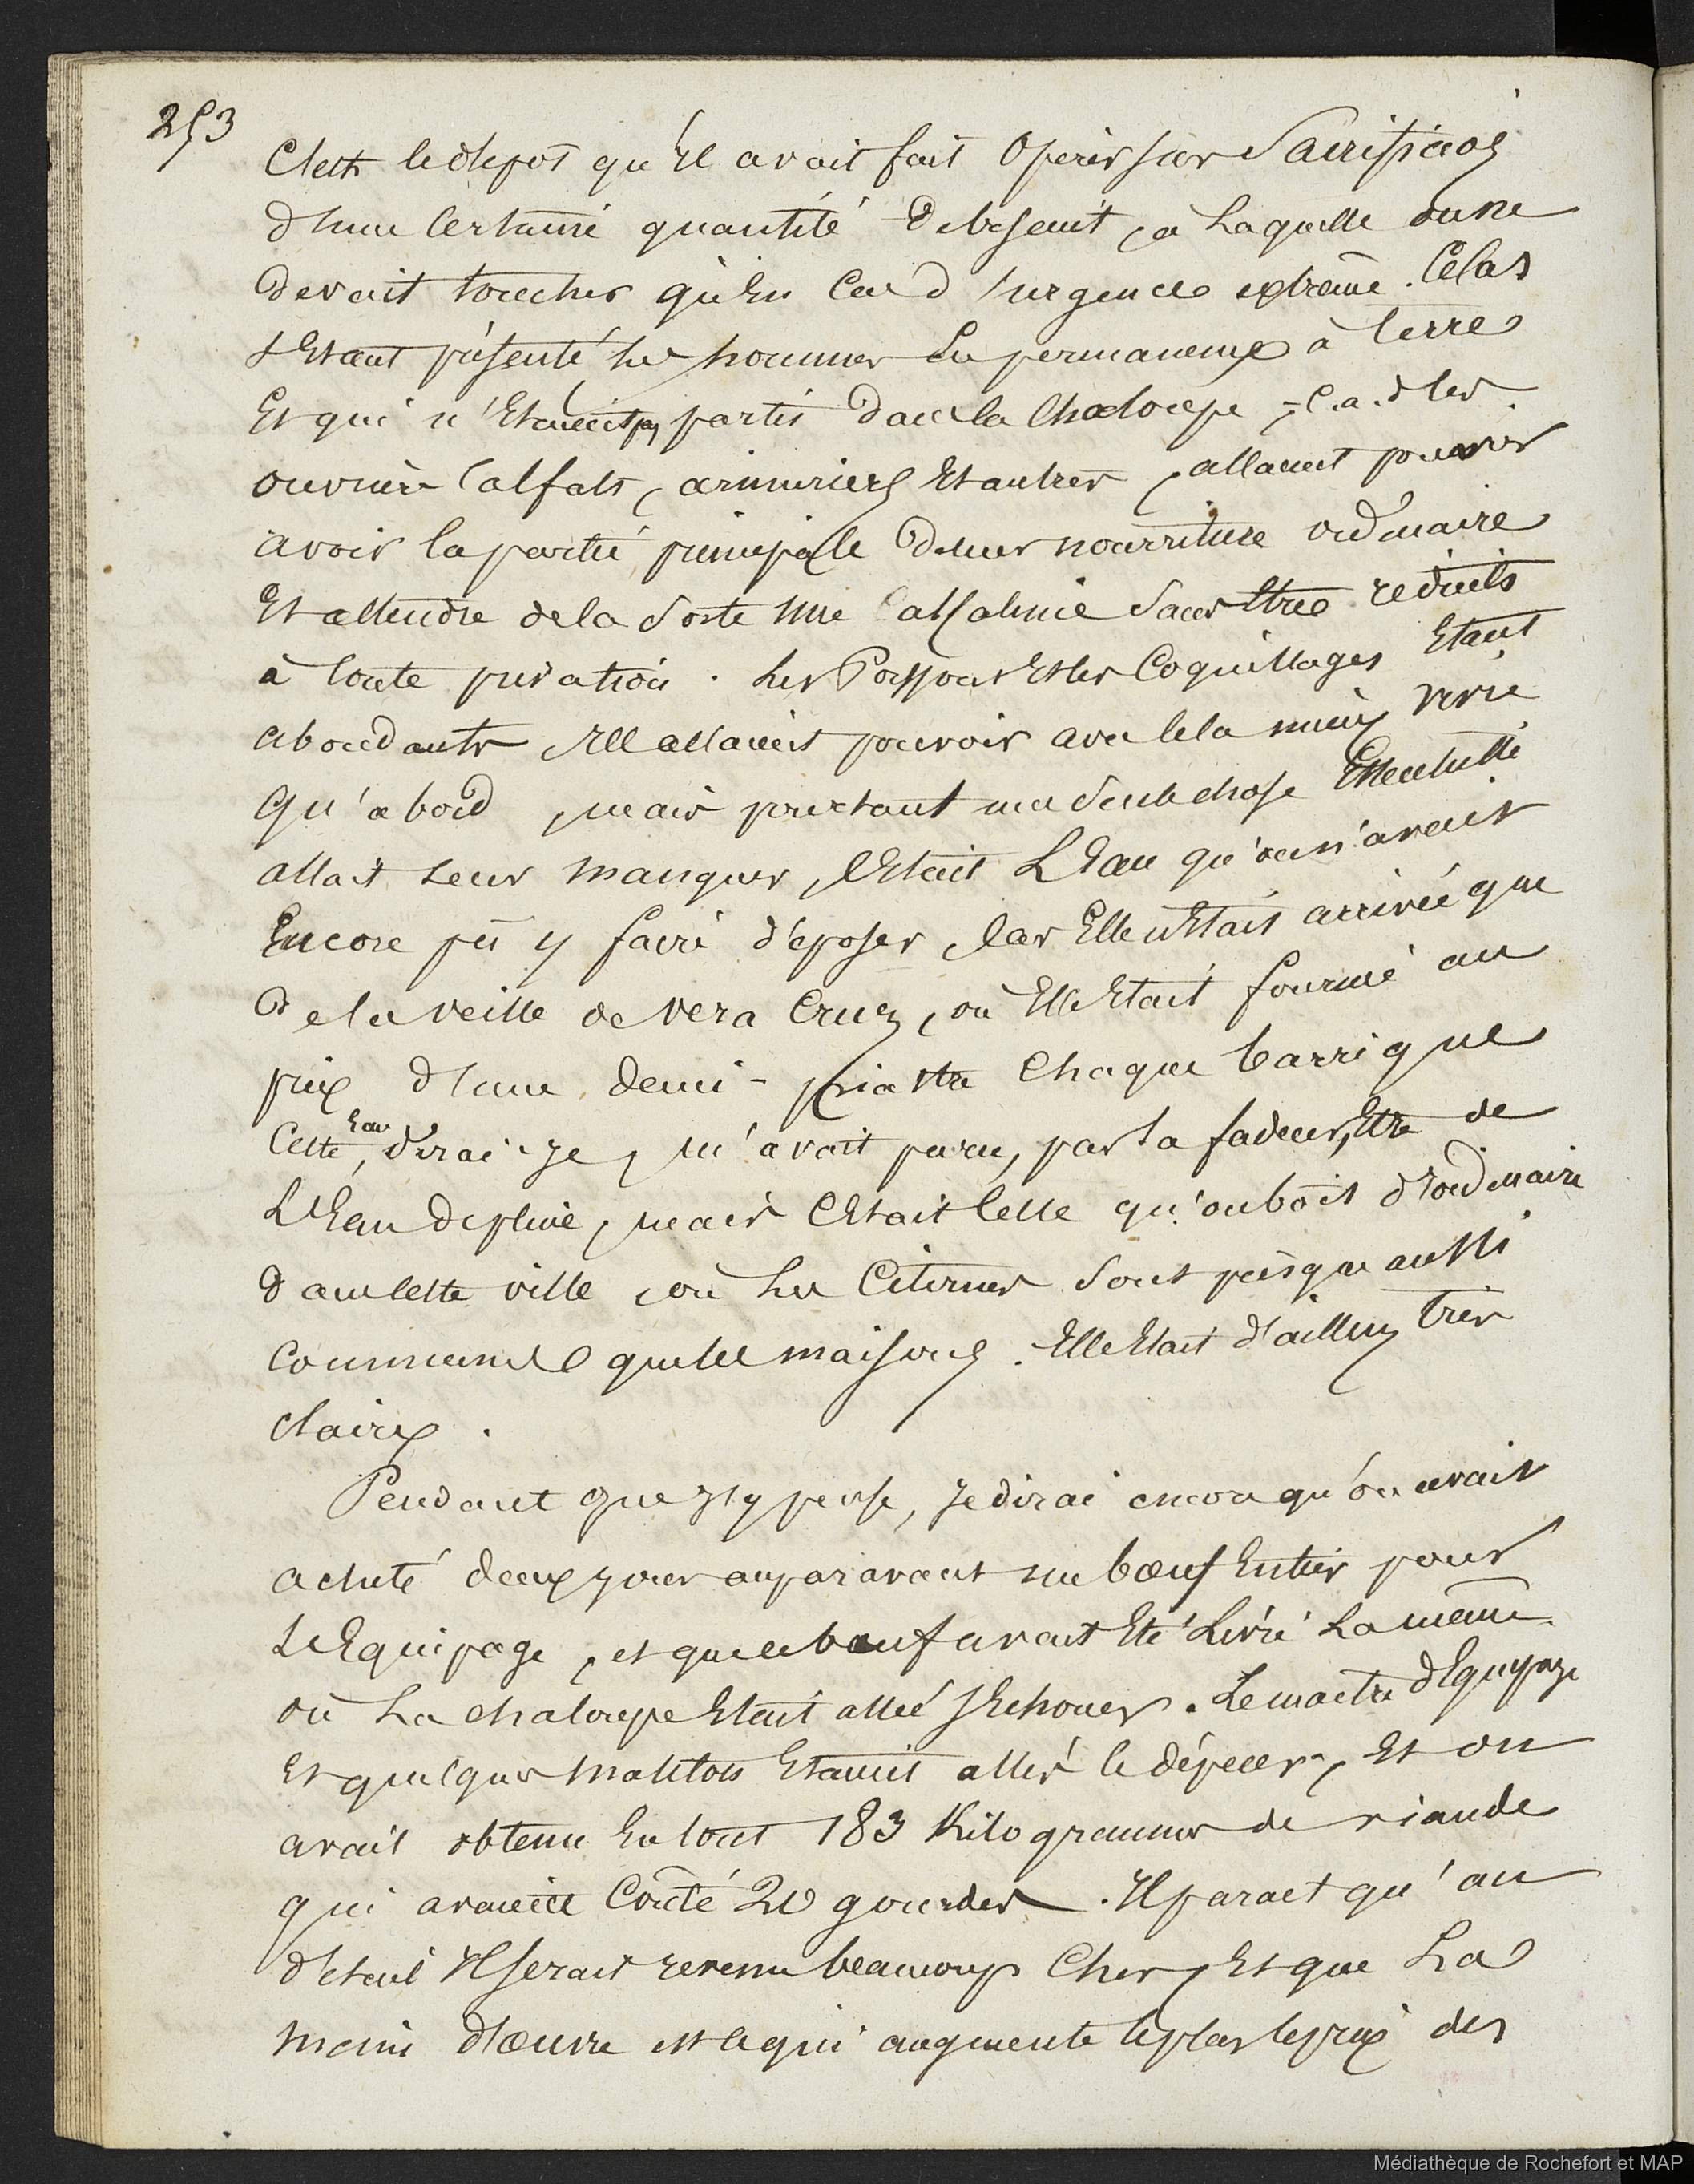 253
C'est le depot qu'Il avait fait Operer sur Sacrificios
d'une Certaine quantité de biscuit, à Laquelle on ne
devait toucher qu'En Cas d'urgence extrême. Ce Cas
s'Etant présenté les hommes En permanence à terre
Et qui n'Etaient pas partis dans la Chaloupe, c.a.d les
ouvriers Calfats, armuriers Et autres, allaient pouvoir
avoir la partie principale de leur nourriture ordinaire
Et attendre de la Sorte une accalmie Sans Etre reduits
à toute privation. Les Poissons Et les Coquillages Etant
abondants Ils allaient pouvoir avec cela mieux vivre
qu'a bord, mais pourtant une Seule chose Essentielle
allait leur manquer, C'Etait L'Eau qu'on n'avait
Encore pû y faire déposer, Car Elle n'Etait arrivée que
de la veille de Vera Cruz, où Elle Etait fournie au
prix d'une demi-piastre Chaque barrique
Cette Eau, dirai-je, m'avait paru, par sa fadeur, Etre de
L'Eau de pluie, mais C'Etait Celle qu'on boit d'ordinaire
dans cette ville, où Les Citernes Sont presque aussi
communes que les maisons. Elle Etait d'ailleurs très
claire.
Pendant que j'y pense, je dirai encore qu'on avait
acheté deux jours auparavant un bœuf Entier pour
L'Equipage, et que ce bœuf avait Eté Livré La même
où La chaloupe Etait allée s'Echouer. Le maitre d'Equipage
Et quelques matelots Etaient allés le dépecer, Et on
avait obtenu En tout 183 Kilogrammes de viande
qui avaient Coûté 20 gourdes. Il parait qu'au
détail Il serait revenu beaucoup Cher, Et que La
main d'œuvre est ce qui augmente le plus le prix des
Médiathèque de Rochefort et MAP